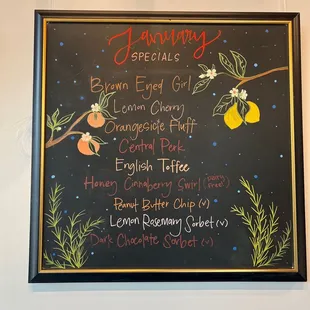 January
SPECIALS
Brown Eyed Girl
Lemon Cherry
Orangesicle Fluff
Central Perk
English Toffee
Honey Cinnaberry Swirl (Dairy Free)
Peanut Butter Chip (v)
Lemon Rosemary Sorbet (v)
Dark Chocolate Sorbet (v)